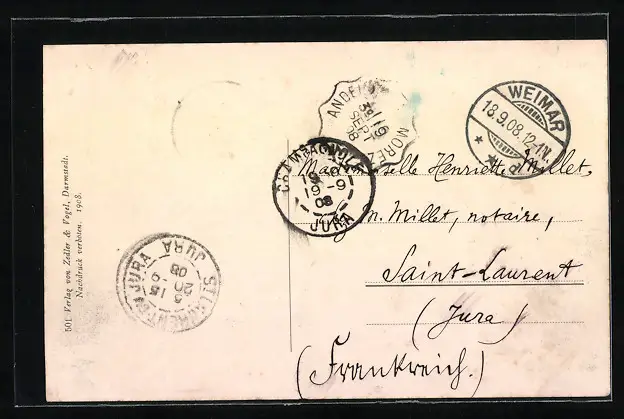 501 Verlag von Zedler & Vogel, Darmstadt.
Nachdruck verboten. 1908.
ANDEL
19
SEPT
08
MOREZ
WEIMAR
18.9.08.12-1N.
CHAMPAGNOLE
19-9
08
JURA
Mademoiselle Henriette Millet,
M. Millet, notaire,
Saint-Laurent
(Jura)
(Frankreich.)
ST LAURENT-DU-JURA
15
20
08
JURA